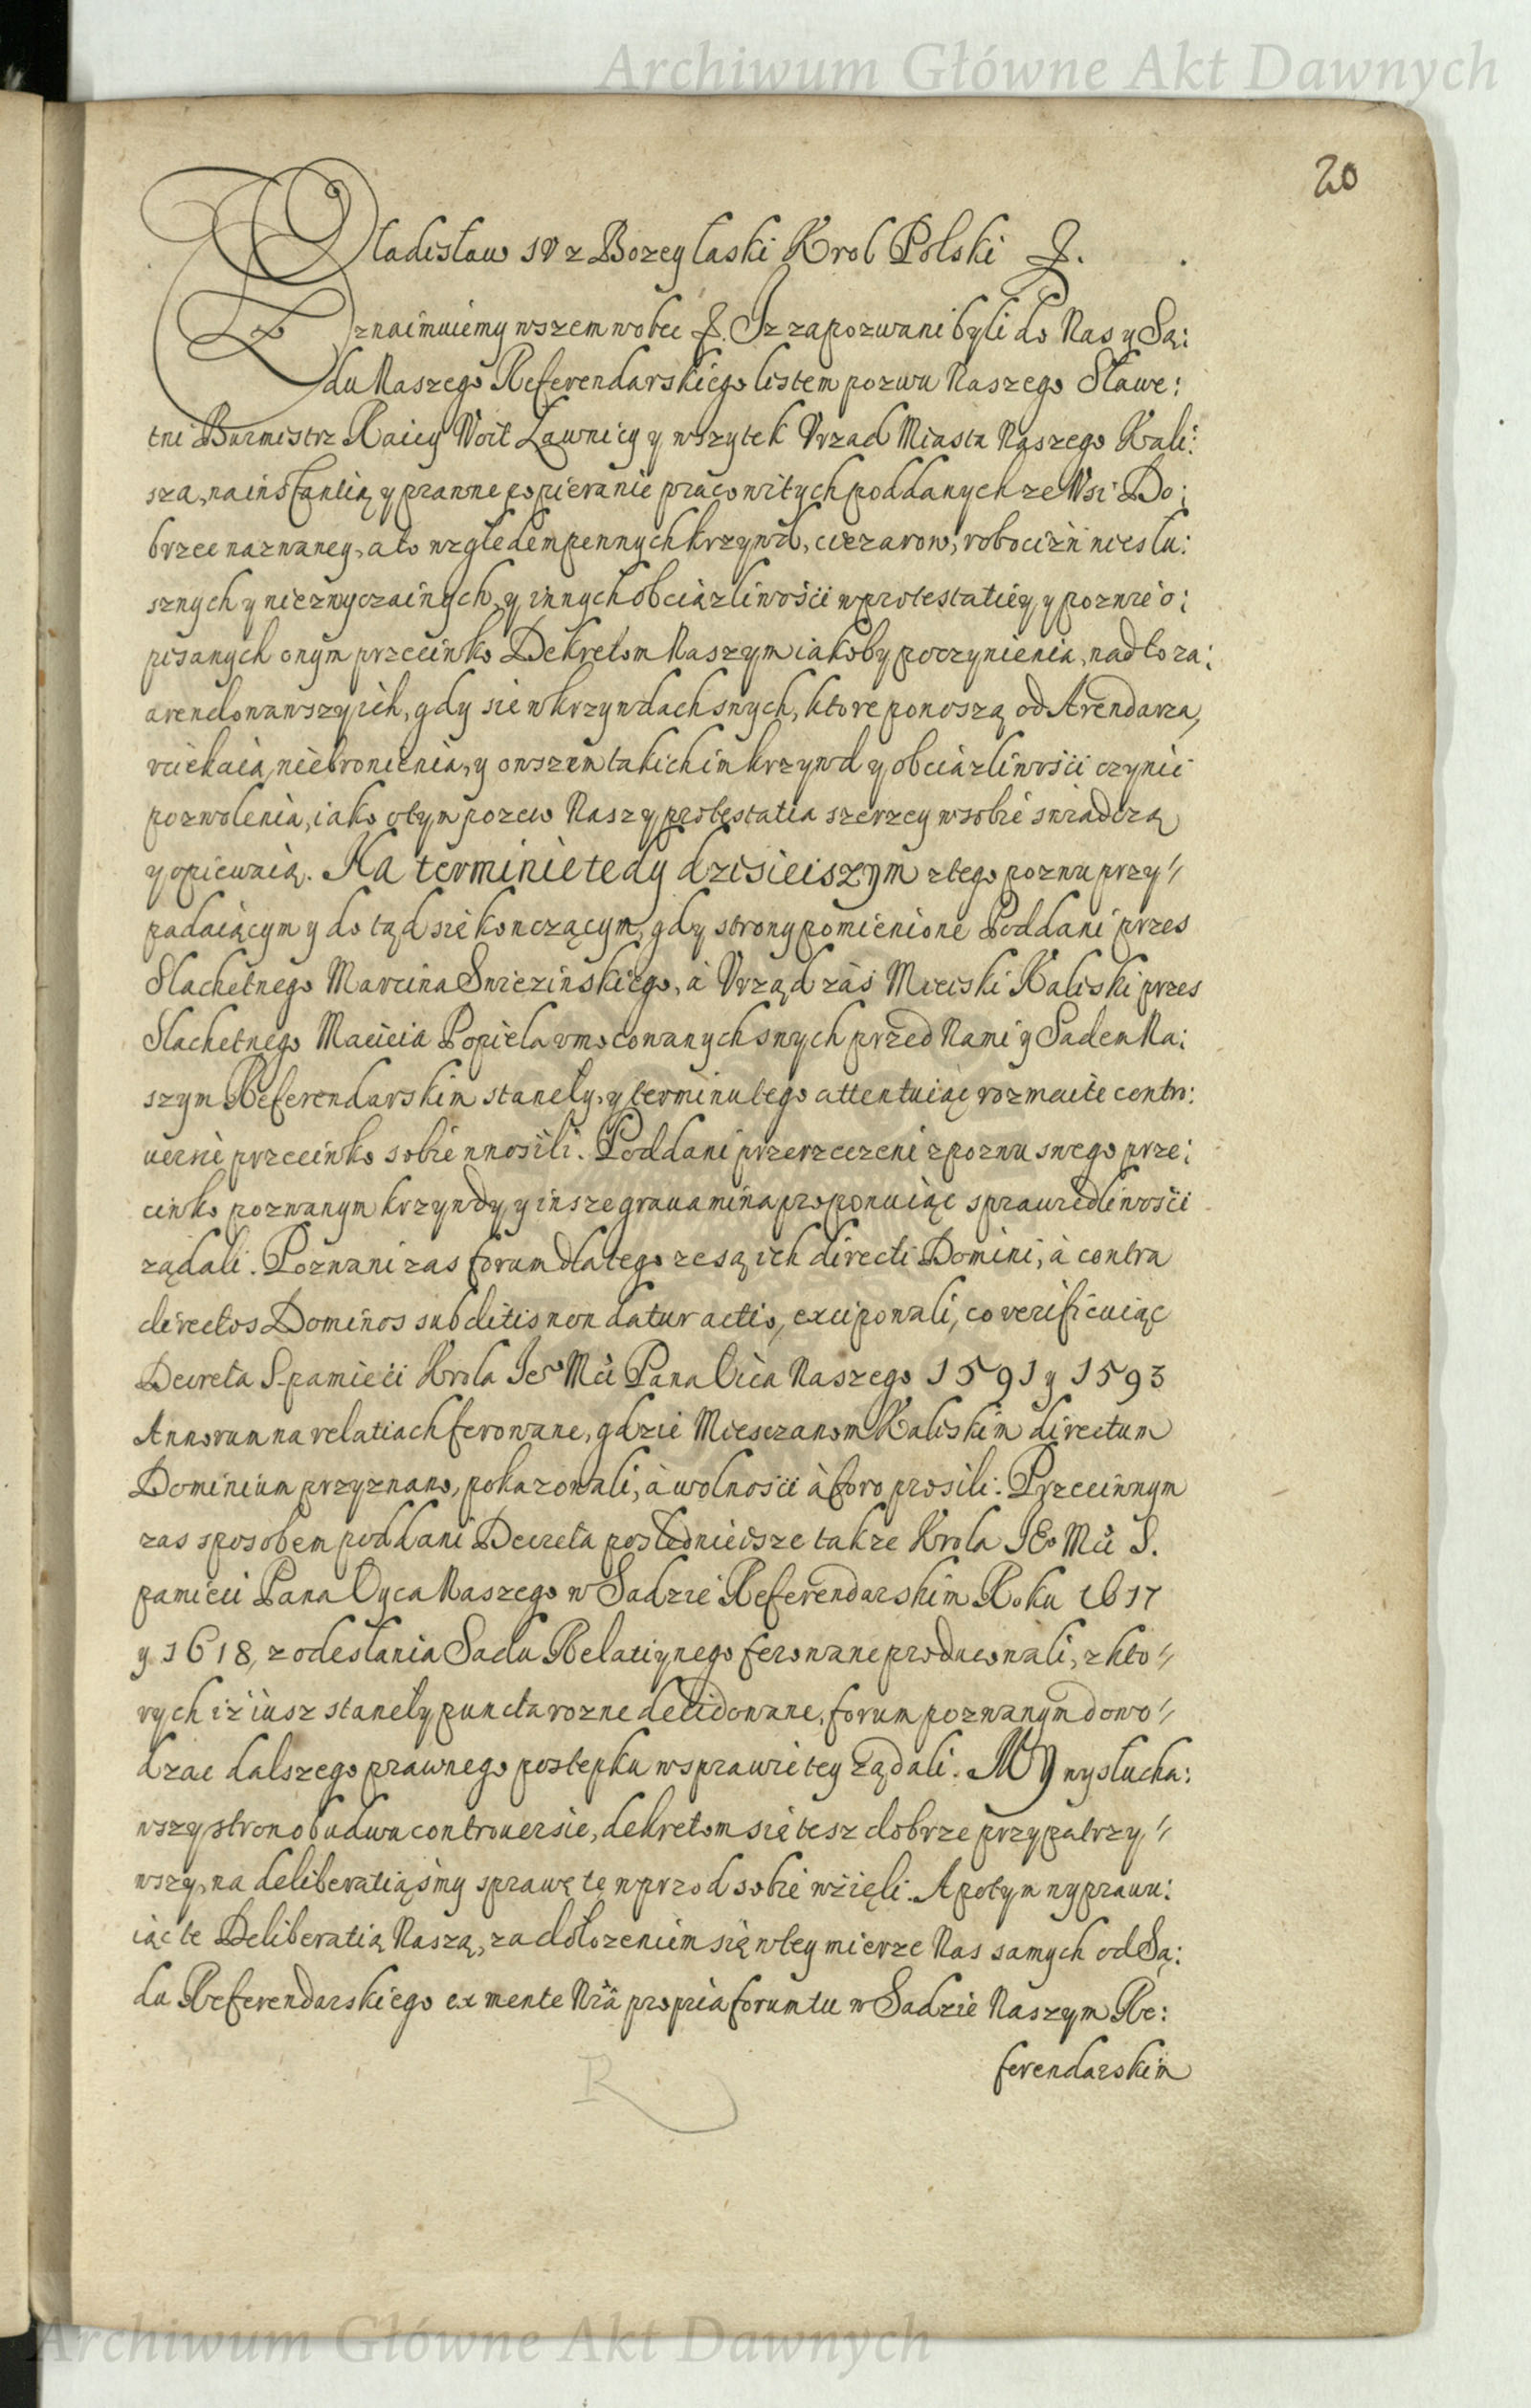 Archiwum Główne Akt Dawnych
20
Wladisław IV z Bozey łaski Krol Polski &.
Oznaimuiemy wszem wobec &. Iz zapozwani byli do Nas y Są:
du Naszego Referendarskiego listem pozwu Naszego Sławe:
tni Burmistrz Raicy Woit Ławnicy y wszytek Vrzad Miasta Naszego Kali:
sza, na instantią y prawne popieranie pracowitych poddanych ze Wsi Do:
brzec nazwaney, a to względem pewnych krzywd, ciezarow, robocizn niesłu:
sznych y niezwyczainych, y innych obciązliwości w protestatiey y pozwie o:
pisanych onym przeciwko Dekretom Naszym iakoby poczynienia, nadto za:
arendowawszy ich, gdy sie w krzywdach swych, ktore ponoszą od Arendarza,
vciekaią, niebronienia, y owszem takich im krzywd y obciązliwości czynić
pozwolenia, iako o tym pozew Nasz y protestatia szerzey w sobie swiadczą
y opiewaią. Na terminie tedy dzisieiszym z tego pozwu przy//
padaiącym y do tąd sie konczącym, gdy strony pomienione Poddani przes
Slachetnego Marcina Sniezinskiego, à Vrząd zaś Mieiski Kaliski przes
Slachetnego Macieia Popiela vmocowanych swych przed Nami y Sądem Na:
szym Referendarskim staneły, y terminu tego attentuiąc rozmaite contro:
uersie przeciwko sobie wnosili. Poddani przerzeczeni z pozwu swego prze:
ciwko pozwanym krzywdy y insze grauamina proponuiąc sprawiedliwości
ządali. Pozwani zas forum dla tego ze są ich directi Domini, à contra
directos Dominos subditis non datur actio, excipowali, co verificuiąc
Decreta S. pamięci Krola Ie° Mći Pana Oica Naszego 1591 y 1593
Annorum na relatiach ferowane, gdzie Miesczanom Kaliskim directum
Dominium przyznano, pokazowali, à wolności à foro prosili. Przeciwnym
zas sposobem poddani Decreta poslednieisze takze Krola IEo Mći S.
pamieci Pana Oyca Naszego w Sadzie Referendarskim Roku 1617
y 1618, z odesłania Sadu Relatiynego ferowane producowali, z kto//
rych iż iusz staneły puncta rozne decidowane, forum pozwanym dowo//
dzac dalszego prawnego postepku w sprawie tey Ządali. MY wysłucha:
wszy stron obudwu controuersie, dekretom sie tesz dobrze przypatrzy//
wszy, na deliberatią śmy sprawę tę wprzod sobie wzięli. A potym wyprawu:
iąc te Deliberatią Naszą, za dołozeniem się w tey mierze Nas samych od Są:
du Referendarskiego ex mente Nrâ propria forum tu w Sadzie Naszym Re:
ferendarskim
R
Archiwum Główne Akt Dawnych